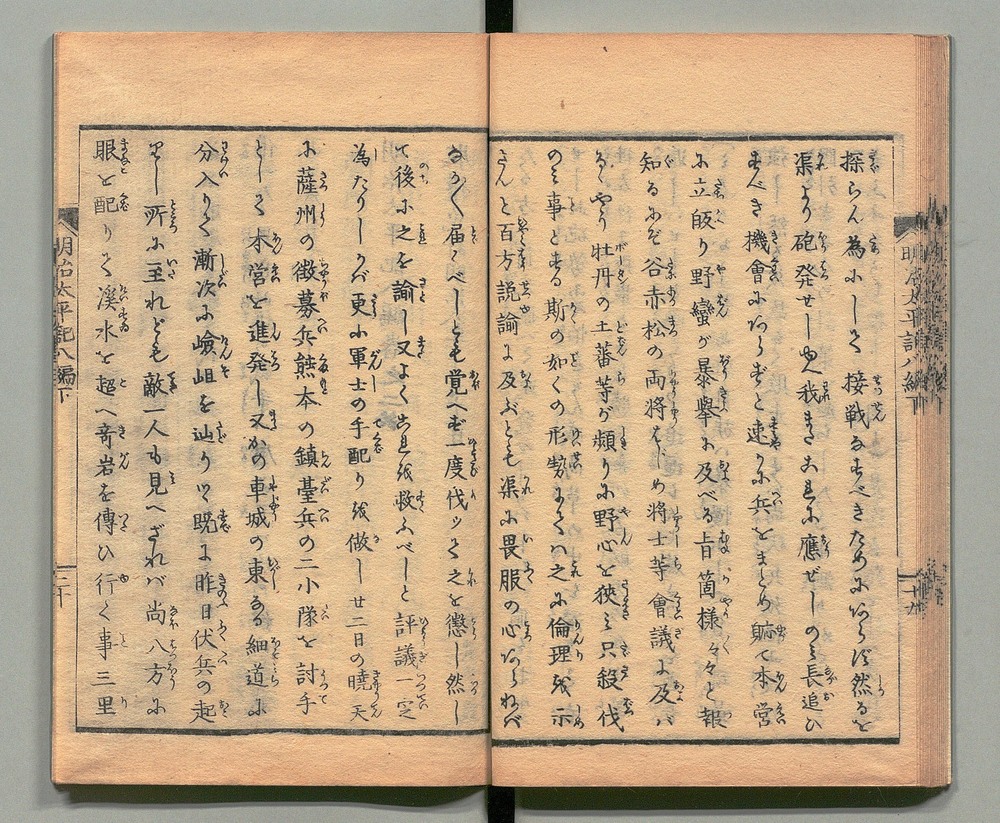 探らん為にして接戦なすべきためにあらず然るを
渠より砲発せしゆゑ我またこれに應ぜしのミ長追ひ
すべき機會にあらずと速かに兵をまとめ軈て本営
に立皈り野蠻が暴舉に及べる旨箇様々々と報
知るにぞ谷赤松の両将をはじめ将士等會議に及バ
るゝやう牡丹の土蕃等が頻りに野心を狹ミ只殺伐
のミ事とする斯の如くの形勢にてハ之に倫理を示
さんと百方説諭に及ぶとも渠に畏服の心あらねバ
なか〱届くべしとも覚へず一度伐ッて之を懲し然し
て後に之を諭し又よくこれを收ふべしと評議一定
為たりしかバ更に軍士の手配りを做し廿二日の暁天
に薩州の徴募兵熊本の鎮臺兵の二小隊を討手
として本営を進発し又かの車城の東なる細道に
分入りて漸次に嶮岨を辿りつゝ既に昨日伏兵の起
りし所に至れども敵一人も見へざれバ尚八方に
眼を配りて溪水を超へ竒岩を傳ひ行く事三里
明治太平記八編下
二十